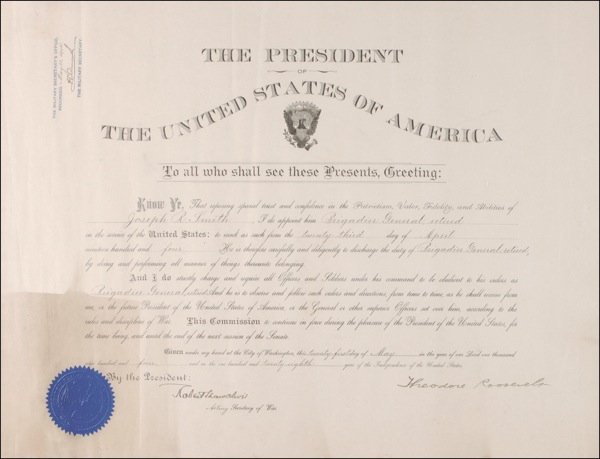 THE MILITARY SECRETARY'S OFFICE,
THE MILITARY SECRETARY.
THE PRESIDENT
OF
THE UNITED STATES OF AMERICA
To all who shall see these Presents, Greeting:
Know Ye, That reposing special trust and confidence in the Patriotism, Valor, Fidelity, and Abilities of
Joseph R. Smith I do appoint him Brigadier General, retired
in the service of the United States: to rank as such from the twenty third day of April
nineteen hundred and four He is therefore carefully and diligently to discharge the duty of Brigadier General, retired,
by doing and performing all manner of things thereunto belonging.
And I do strictly charge and require all Officers and Soldiers under his command to be obedient to his orders as
Brigadier General, retired. And he is to observe and follow such orders and directions, from time to time, as he shall receive from
me, or the future President of the United States of America, or the General or other superior Officers set over him, according to the
rules and discipline of War. This Commission to continue in force during the pleasure of the President of the United States, for
the time being, and until the end of the next session of the Senate.
Given under my hand at the City of Washington, this twenty first day of May in the year of our Lord one thousand
nine hundred and four and in the one hundred and twenty eighth year of the Independence of the United States.
By the President:
Theodore Roosevelt
Acting Secretary of War.